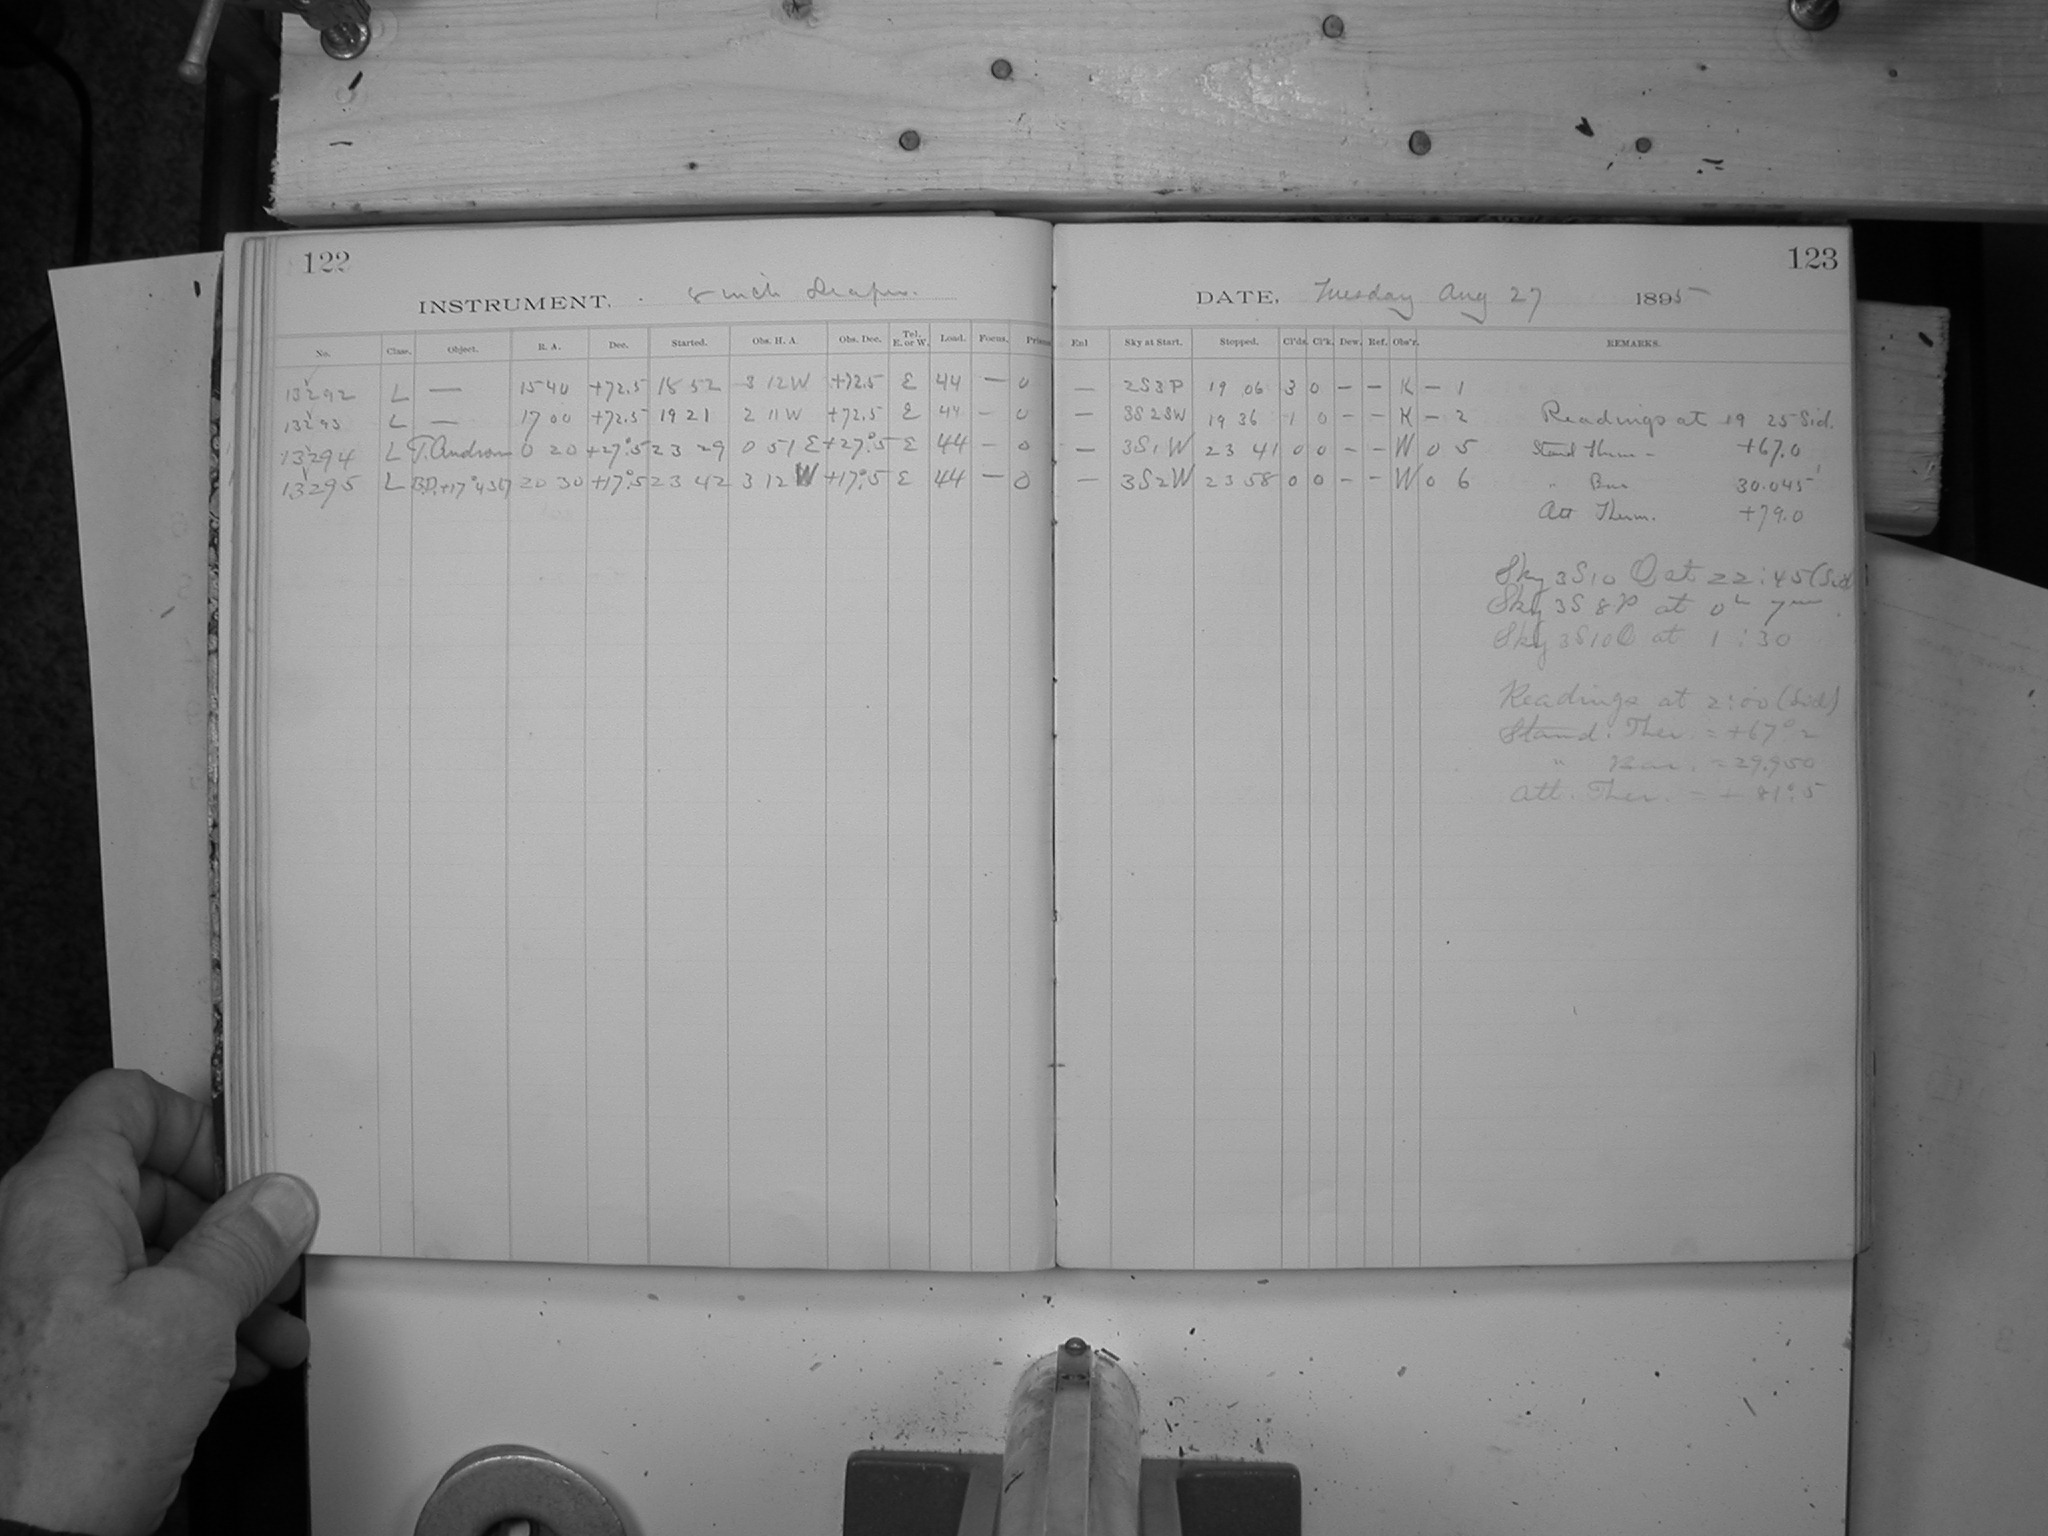 122
INSTRUMENT, 8 inch Draper.
No. Class. Object. R. A. Dec. Started. Obs. H. A. Obs. Dec. Tel. E. or W. Load. Focus. Prism
13292 L — 15 40 +72.5 18 52 3 12 W +72.5 E 44 — 0
13293 L — 17 00 +72.5 19 21 2 11 W +72.5 E 44 – 0
13294 L T. Androm 0 20 +27°.5 23 29 0 51 E +27°.5 E 44 – 0
13295 L B.D.+17°4367 20 30 +17°.5 23 42 3 12 W +17°.5 E 44 — 0
123
DATE, Tuesday Aug 27 1895
Enl Sky at Start. Stopped. Cl'ds. Cl'k. Dew. Ref. Obs'r. REMARKS.
— 2S3P 19 06 3 0 – – K – 1
— 3S2SW 19 36 1 0 – – K – 2 Readings at 19 25 Sid.
— 3S1W 23 41 0 0 – – W 0 5 Stand Therm – +67.0
— 3S2W 23 58 0 0 – – W 0 6 " Bar 30.045
Att Therm. +79.0
Sky 3S10 O at 22:45 (Sid
Sky 3S 8P at 0h 7m.
Sky 3S10O at 1:30
Readings at 2:00 (Sid)
Stand. Ther. = +67°2
" Bar. = 29.950
Att. Ther. = + 81°.5